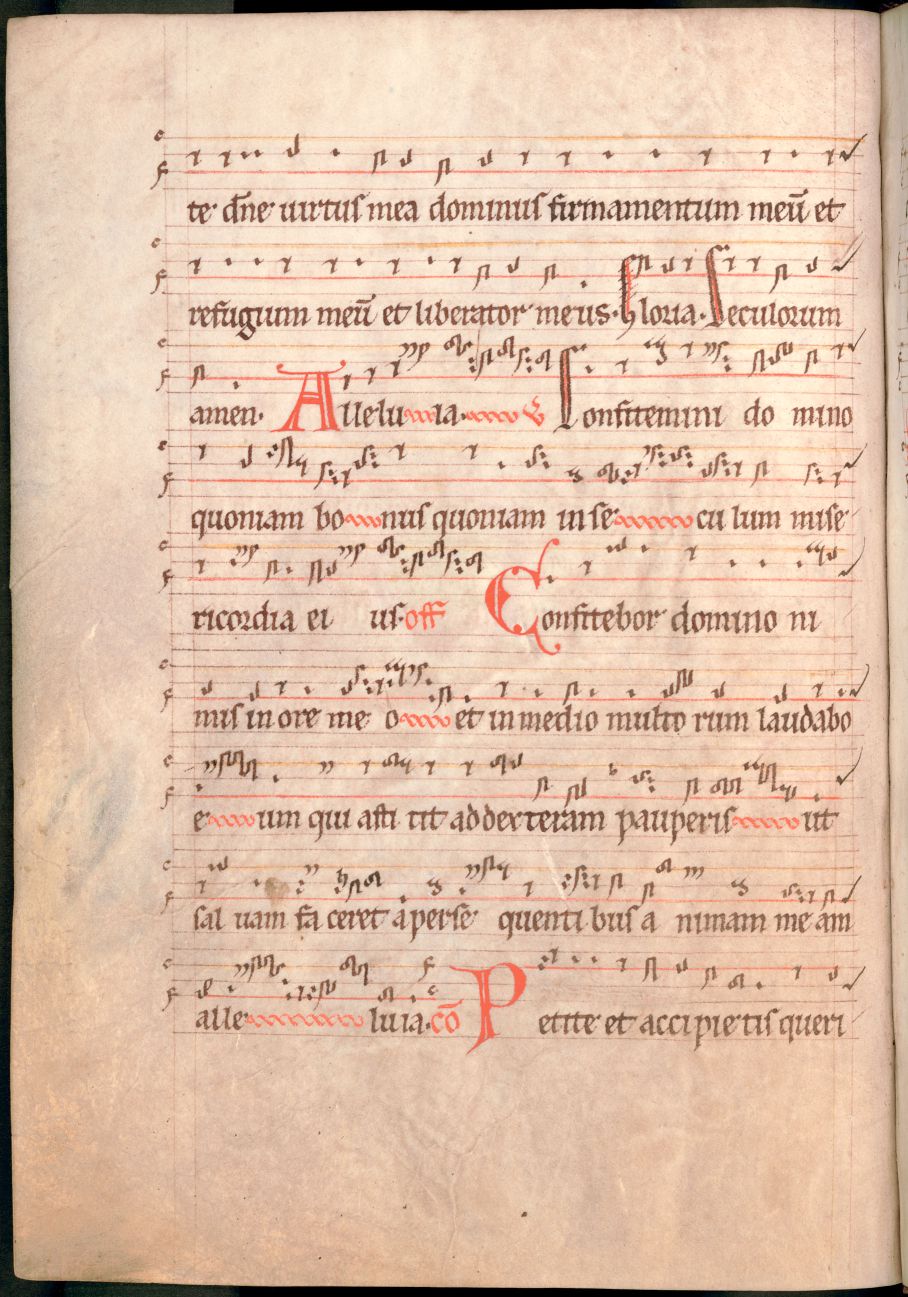 te dn̄e uirtus mea dominus firmamentum meū et
refugium meū et liberator meus. Gloria. Seculorum
amen. Alleluia. V Confitemini do mino
quoniam bonus quoniam in se cu lum mise
ricordia ei us. off Confitebor domino ni
mis in ore me o et in medio multo rum laudabo
e um qui asti tit ad dexteram pauperis ut
sal uam fa ceret a perse quenti bus a nimam me am
alle luia. cō Petite et accipietis queri